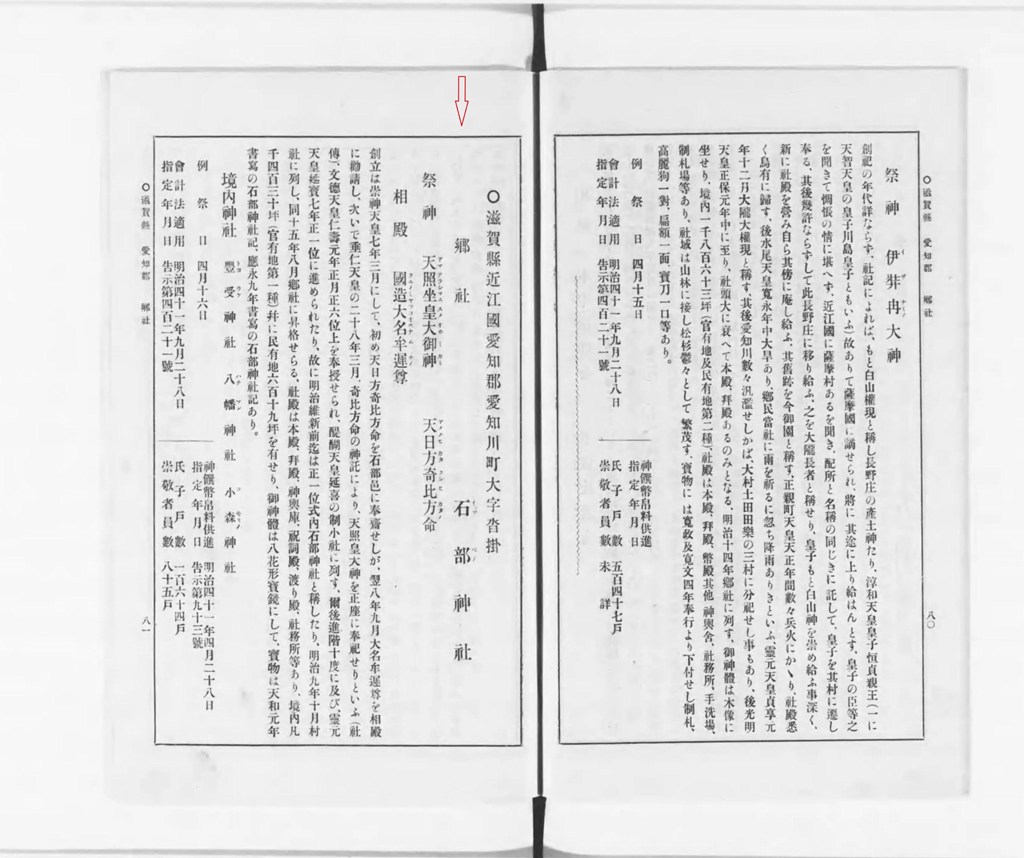 ○滋賀縣 愛知郡 鄕社
八〇
祭神 伊弉冉大神
創祀の年代詳ならず、社記によれば、もと白山權現と稱し長野庄の產土神たり、淳和天皇皇子恒貞親王(一に
天智天皇の皇子川島皇子ともいふ)故ありて薩摩國に謫せられ、將に其途に上り給はんとす、皇子の臣等之
を聞きて惆悵の情に堪へず、近江國に薩摩村あるを聞き、配所と名稱の同じきに託して、皇子を其村に遷し
奉る、其後幾許ならずして此長野庄に移り給ふ、之を大隴長者と稱せり、皇子もと白山神を崇め給ふ事深く、
新に社殿を營み自ら其傍に庵し給ふ、其舊跡を今御園と稱す、正親町天皇天正年間數々兵火にかゝり、社殿悉
く烏有に歸す、後水尾天皇寬永年中大旱あり、鄕民當社に雨を祈るに忽ち降雨ありきといふ、靈元天皇貞享元
年十二月大隴大權現と稱す、其後愛知川數々汎濫せしかば、大村土田田樂の三村に分祀せし事もあり、後光明
天皇正保元年中に至り、社頭大に衰へて本殿、拜殿あるのみとなる、明治十四年鄕社に列す、御神體は木像に
坐せり、境内一千八百六十三坪(官有地及民有地第二種)社殿は本殿、拜殿、幣殿其他神輿舍、社務所、手洗場、
制札場等あり、社域は山林に接し松杉鬱々として繁茂す、寶物には寬政及寬文四年奉行より下付せし制札、
高麗狗一對、扁額一面、寶刀一口等あり。
例祭日 四月十五日
會計法適用 明治四十一年九月二十八日
指定年月日 告示第四百二十一號
神饌幣帛料供進
指定年月日
氏子戶數 五百四十七戶
崇敬者員數 未詳
○滋賀縣近江國愛知郡愛知川町大字沓掛
鄕社 石部神社
祭神 天照坐皇大御神 天日方奇比方命
相殿 國造大名牟遲尊
創立は崇神天皇七年三月にして、初め天日方奇比方命を石部邑に奉齋せしが、翌八年九月大名牟遲尊を相殿
に勸請し、次いで垂仁天皇の二十八年三月、奇比方命の神託により、天照皇大神を正座に奉祀せりといふ(社
傳)、文德天皇仁壽元年正月正六位上を奉授せられ、醍醐天皇延喜の制小社に列す、爾後進階十度に及び、靈元
天皇延寶七年正一位に進められたり、故に明治維新前迄は正一位式内石部神社と稱したり、明治九年十月村
社に列し、同十五年八月鄕社に昇格せらる、社殿は本殿、拜殿、神輿庫、祝詞殿、渡り殿、社務所等あり、境内凡
千四百三十坪(官有地第一種)幷に民有地六百十九坪を有せり、御神體は八花形寶鏡にして、寶物は天和元年
書寫の石部神社記、應永九年書寫の石部神社記あり。
境内神社 豐受神社 八幡神社 小森神社
例祭日 四月十六日
會計法適用 明治四十一年九月二十八日
指定年月日 告示第四百二十一號
神饌幣帛料供進 明治四十一年四月二十八日
指定年月日 告示第九十三號
氏子戶數 一百六十四戶
崇敬者員數 八十五戶
○滋賀縣 愛知郡 鄕社
八一